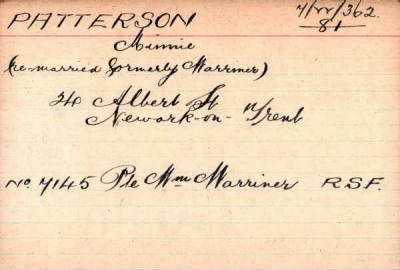 PATTERSON 7/W/362
81
Minnie
(re-married formerly Marriner)
24 Albert St
Newark-on-Trent
No 7145 Pte Wm Marriner R.S.F.